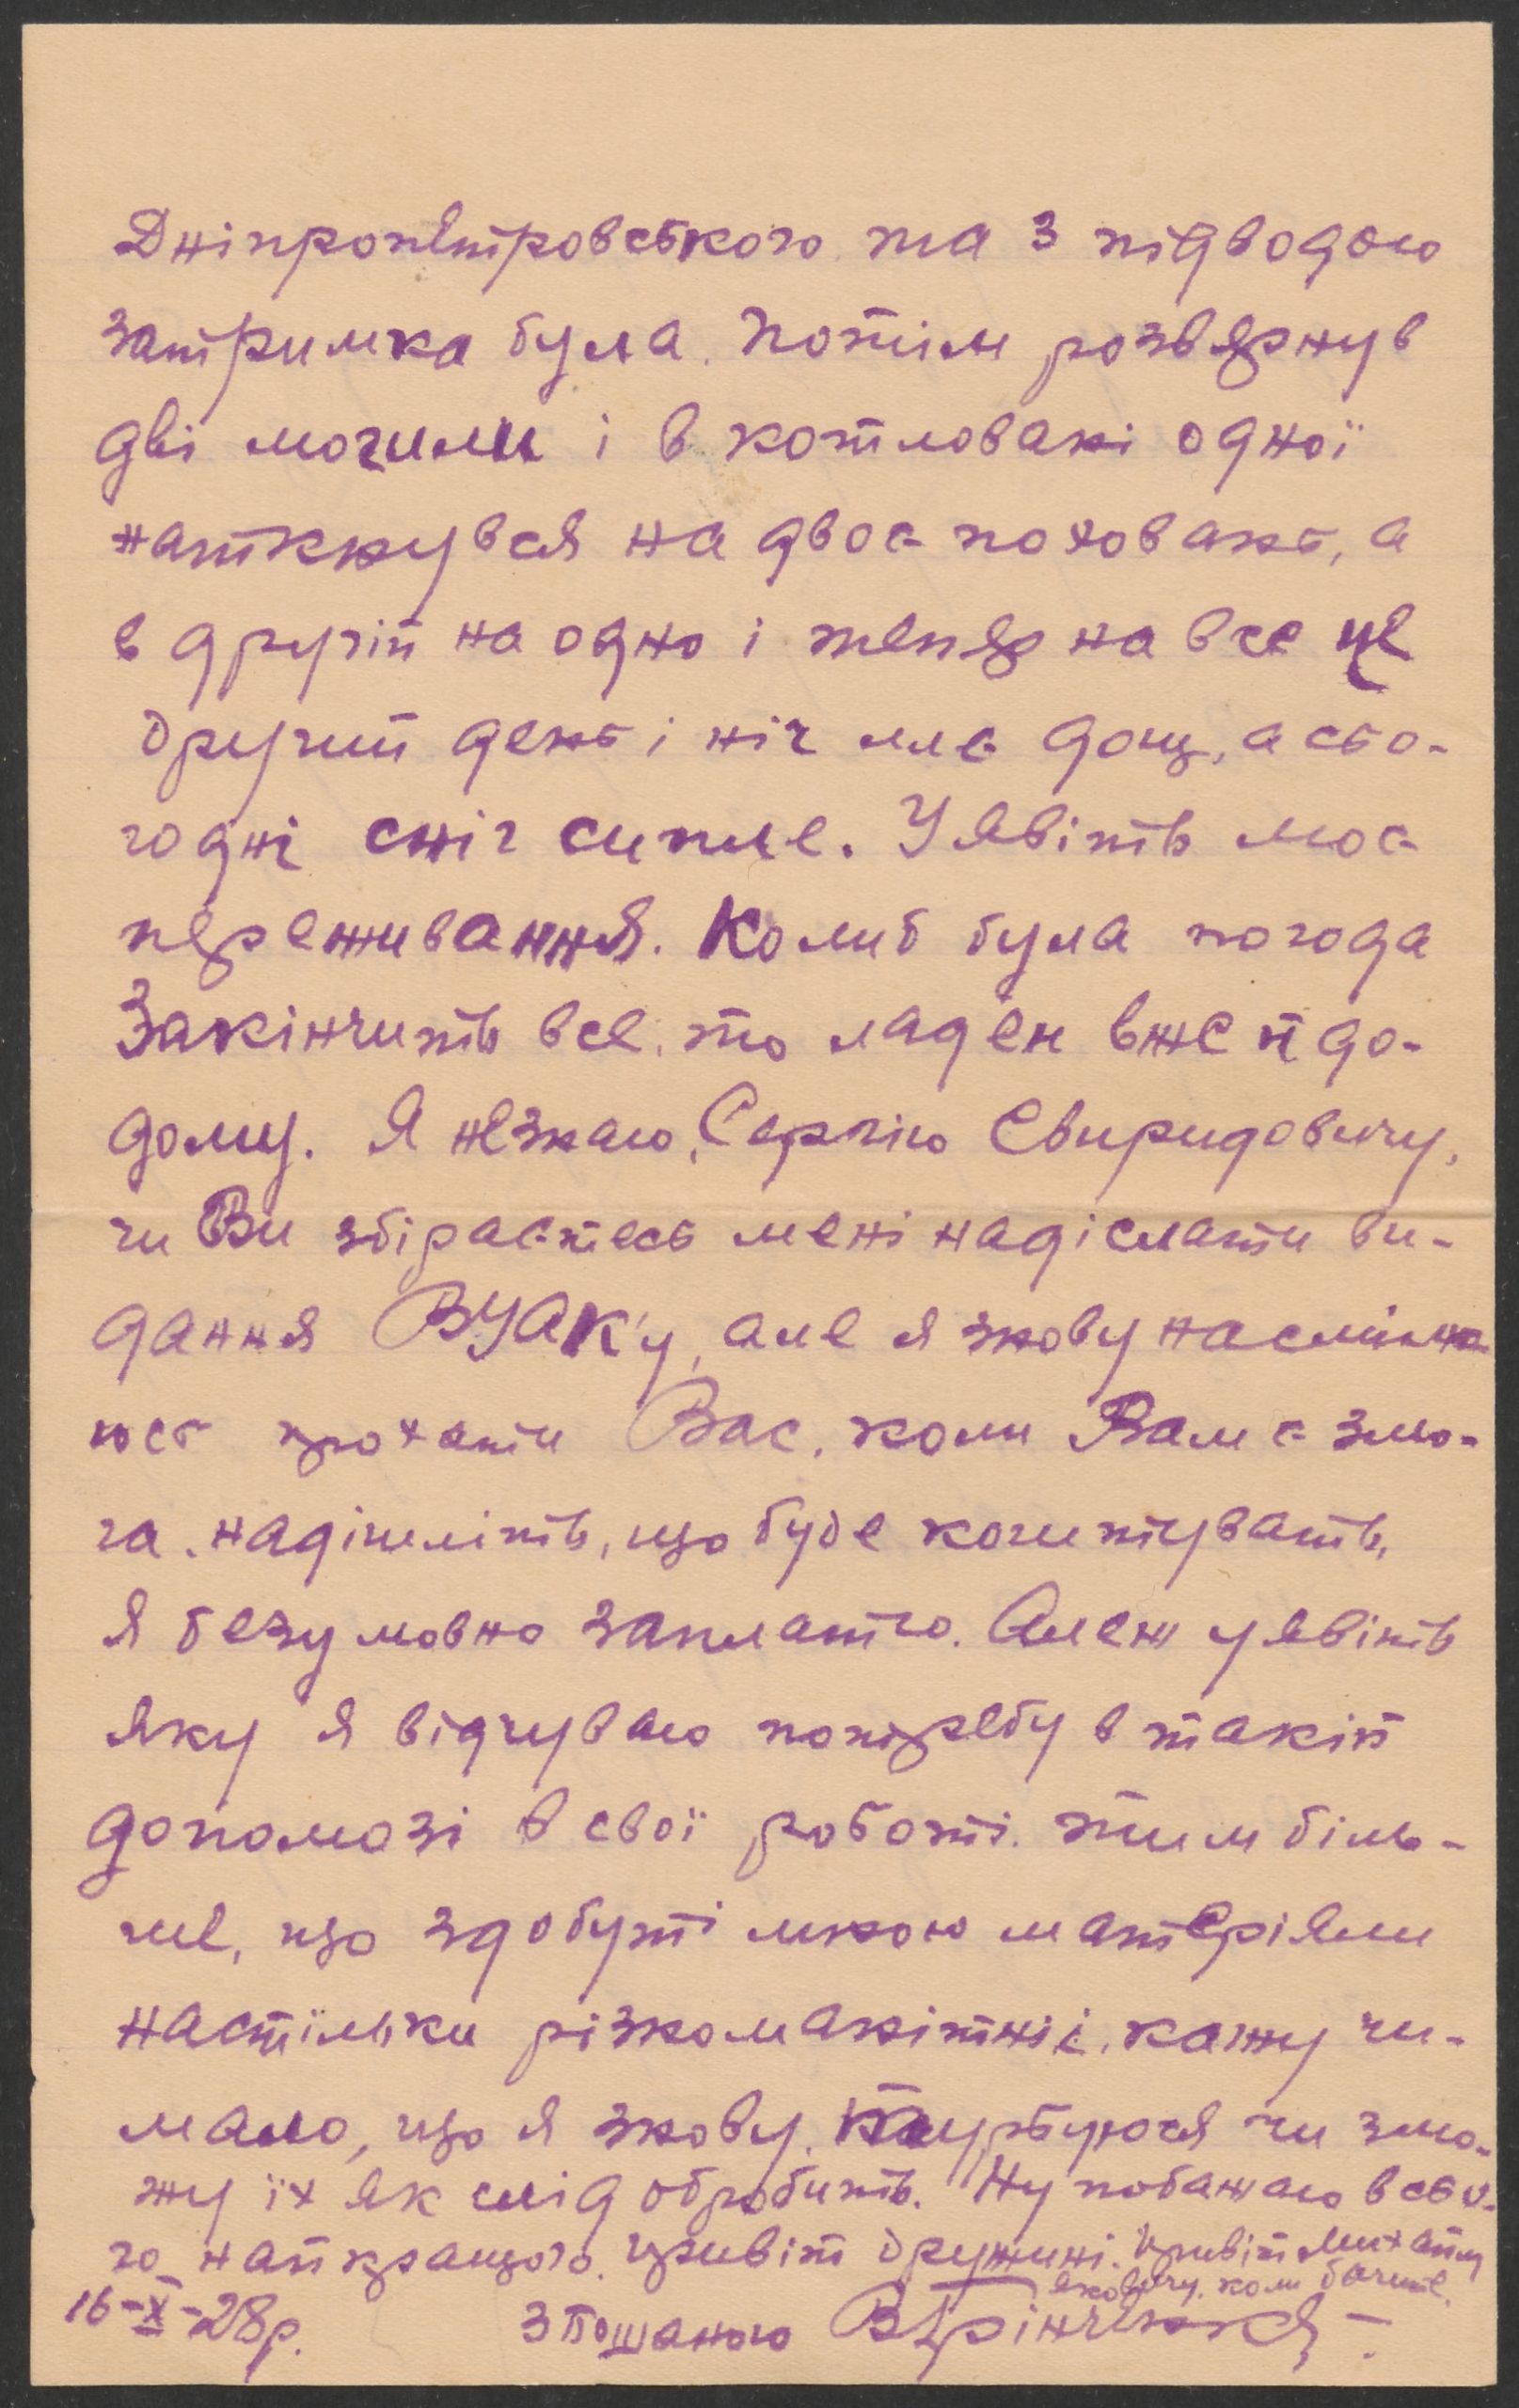 Дніпропетровського та з підводою
затримка була. Потім розвернув
дві могили і в котловані одної
наткнувся на двоє поховань, а
в другій на одно і тепер на все це
другий день і ніч лле дощ, а сьо-
годні сніг сипле. Уявіть моє
переживання. Колиб була погода
Закінчить все, то ладен вже й до-
дому. Я незнаю, Сергію Свиридовичу,
чи Ви збіраєтесь мені надіслати ви-
дання ВУАК'у, але я знову насмілю-
юсь прохати Вас, коли Вам є змо-
га, надішліть, що буде коштувать,
я безумовно заплатю. Алеж уявіть
яку я відчуваю потребу в такій
допомозі в свої роботі. тим біль-
ше, що здобуті мною матеріяли
настільки різноманітні і, кажу чи-
мало, що я знову, турбуюся чи змо-
жу їх як слід обробить. Ну побажаю всьо-
го найкращого. Привіт дружині. Привіт Михайлу
Яковичу, коли бачите.
16-X-28р. З Пошаною ВГрінченко